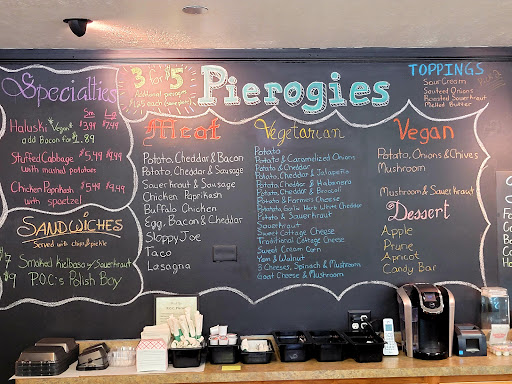 Specialties
Sm. Lg.
Haluski *Vegan* $3.99 $7.49
add Bacon for $1.89
Stuffed Cabbage $5.49 $9.49
with mashed potatoes
Chicken Paprikash $5.49 $9.49
with spaetzel
SANDWICHES
Served with chips & pickle
$7 Smoked kielbasa w/ Sauerkraut
$9 P.O.C.'s Polish Boy
3 for 5
Additional pierogies
Pierogies
Meat
Potato, Cheddar & Bacon
Potato, Cheddar & Sausage
Sauerkraut & Sausage
Chicken Paprikash
Buffalo Chicken
Egg, Bacon & Cheddar
Sloppy Joe
Taco
Lasagna
Vegetarian
Potato
Potato & Caramelized Onions
Potato & Cheddar
Potato, Cheddar & Jalapeño
Potato, Cheddar & Habanero
Potato, Cheddar & Broccoli
Potato & Farmers Cheese
Potato, Garlic Herb White Cheddar
Potato & Sauerkraut
Sauerkraut
Sweet Cottage Cheese
Traditional Cottage Cheese
Sweet Corn
Yam & Walnut
3 Cheeses, Spinach & Mushroom
Goat Cheese & Mushroom
TOPPINGS
Sour Cream
Sautéed Onions
Roasted Sauerkraut
Melted Butter
Vegan
Potato, Onions & Chives
Mushroom
Mushroom & Sauerkraut
Dessert
Apple
Prune
Apricot
Candy Bar